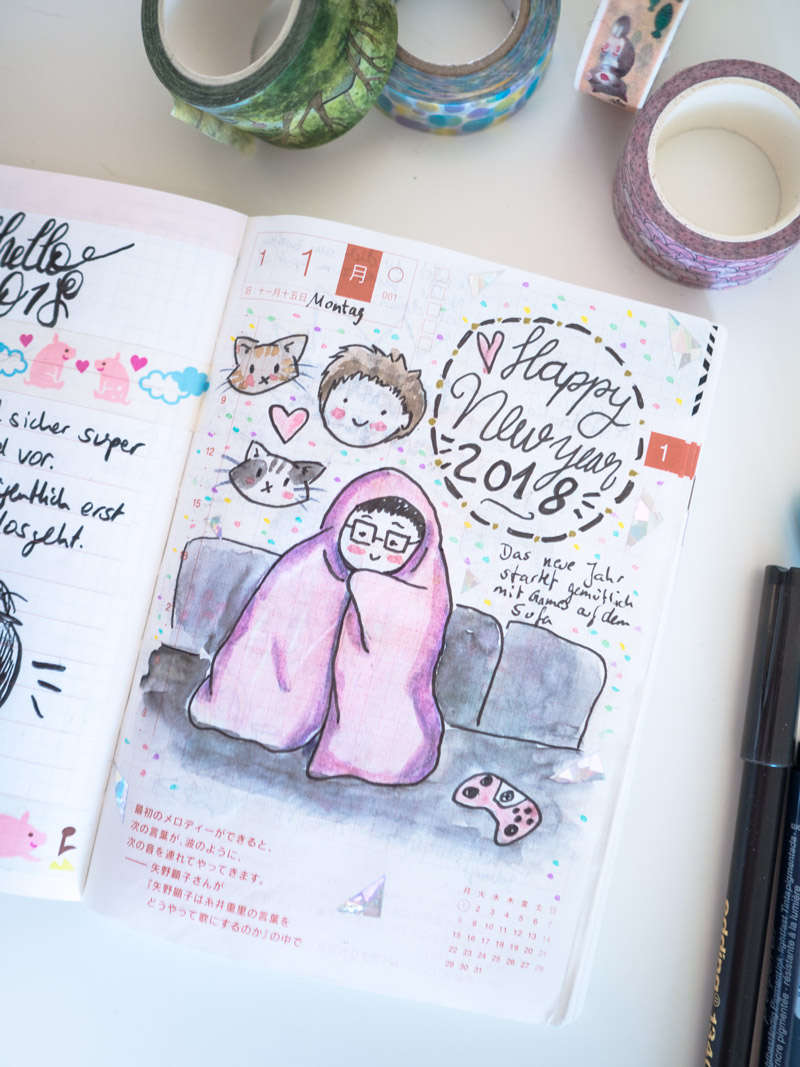 hello
2018
sicher super
vor.
erst
losgeht.
1 1 月
日:十一月十五日
001
Montag
Happy
New year
2018
1
9
12
15
Das neue Jahr
startet gemütlich
mit Games auf dem
Sofa
最初のメロディーができると、
次の言葉が、波のように、
次の音を連れてやってきます。
——矢野顕子さんが
『矢野顕子は糸井重里の言葉を
どうやって歌にするのか』の中で
月 火 水 木 金 土 日
1 2 3 4 5 6 7
8 9 10 11 12 13 14
15 16 17 18 19 20 21
22 23 24 25 26 27 28
29 30 31
edding
encre pigmentée · résistante à la lumière